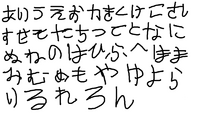 あいうえおかきくけこさし
すせそたちつてとなに
ぬねのはひふへほま
みむめもやゆよら
りるれろん